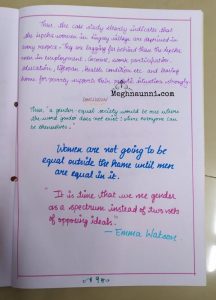 Thus, the case study clearly indicates that
the women in village are deprived in
every respect. They are lagging far behind than the
men in employment, income, work participation,
education, lifespan, health condition etc and leading
home for poverty support their situation strongly.
Meghnaunni.com
CONCLUSION
Thus, "a gender equal society would be one where
the word gender does not exist: where everyone can
be themselves."
Women are not going to be
equal outside the home until men
are equal in it.
"It is time that we see gender
as a spectrum instead of two sets
of opposing ideals."
— Emma Watson